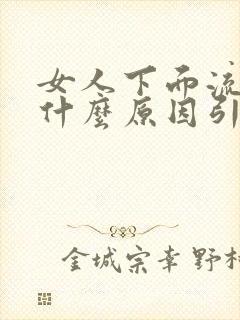 女人下而流
什麼原因引
金城宗幸野村